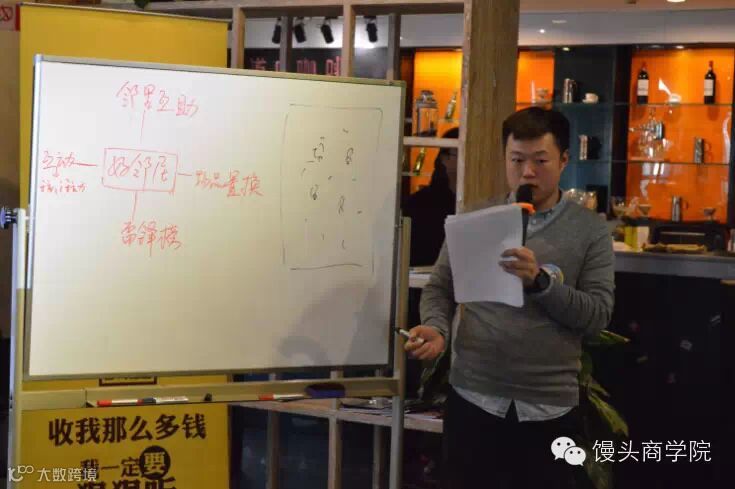 邻里互助
互动
活动
好邻居
物品置换
雷锋榜
收我那么多钱
我一定要
大数跨境
馒头商学院